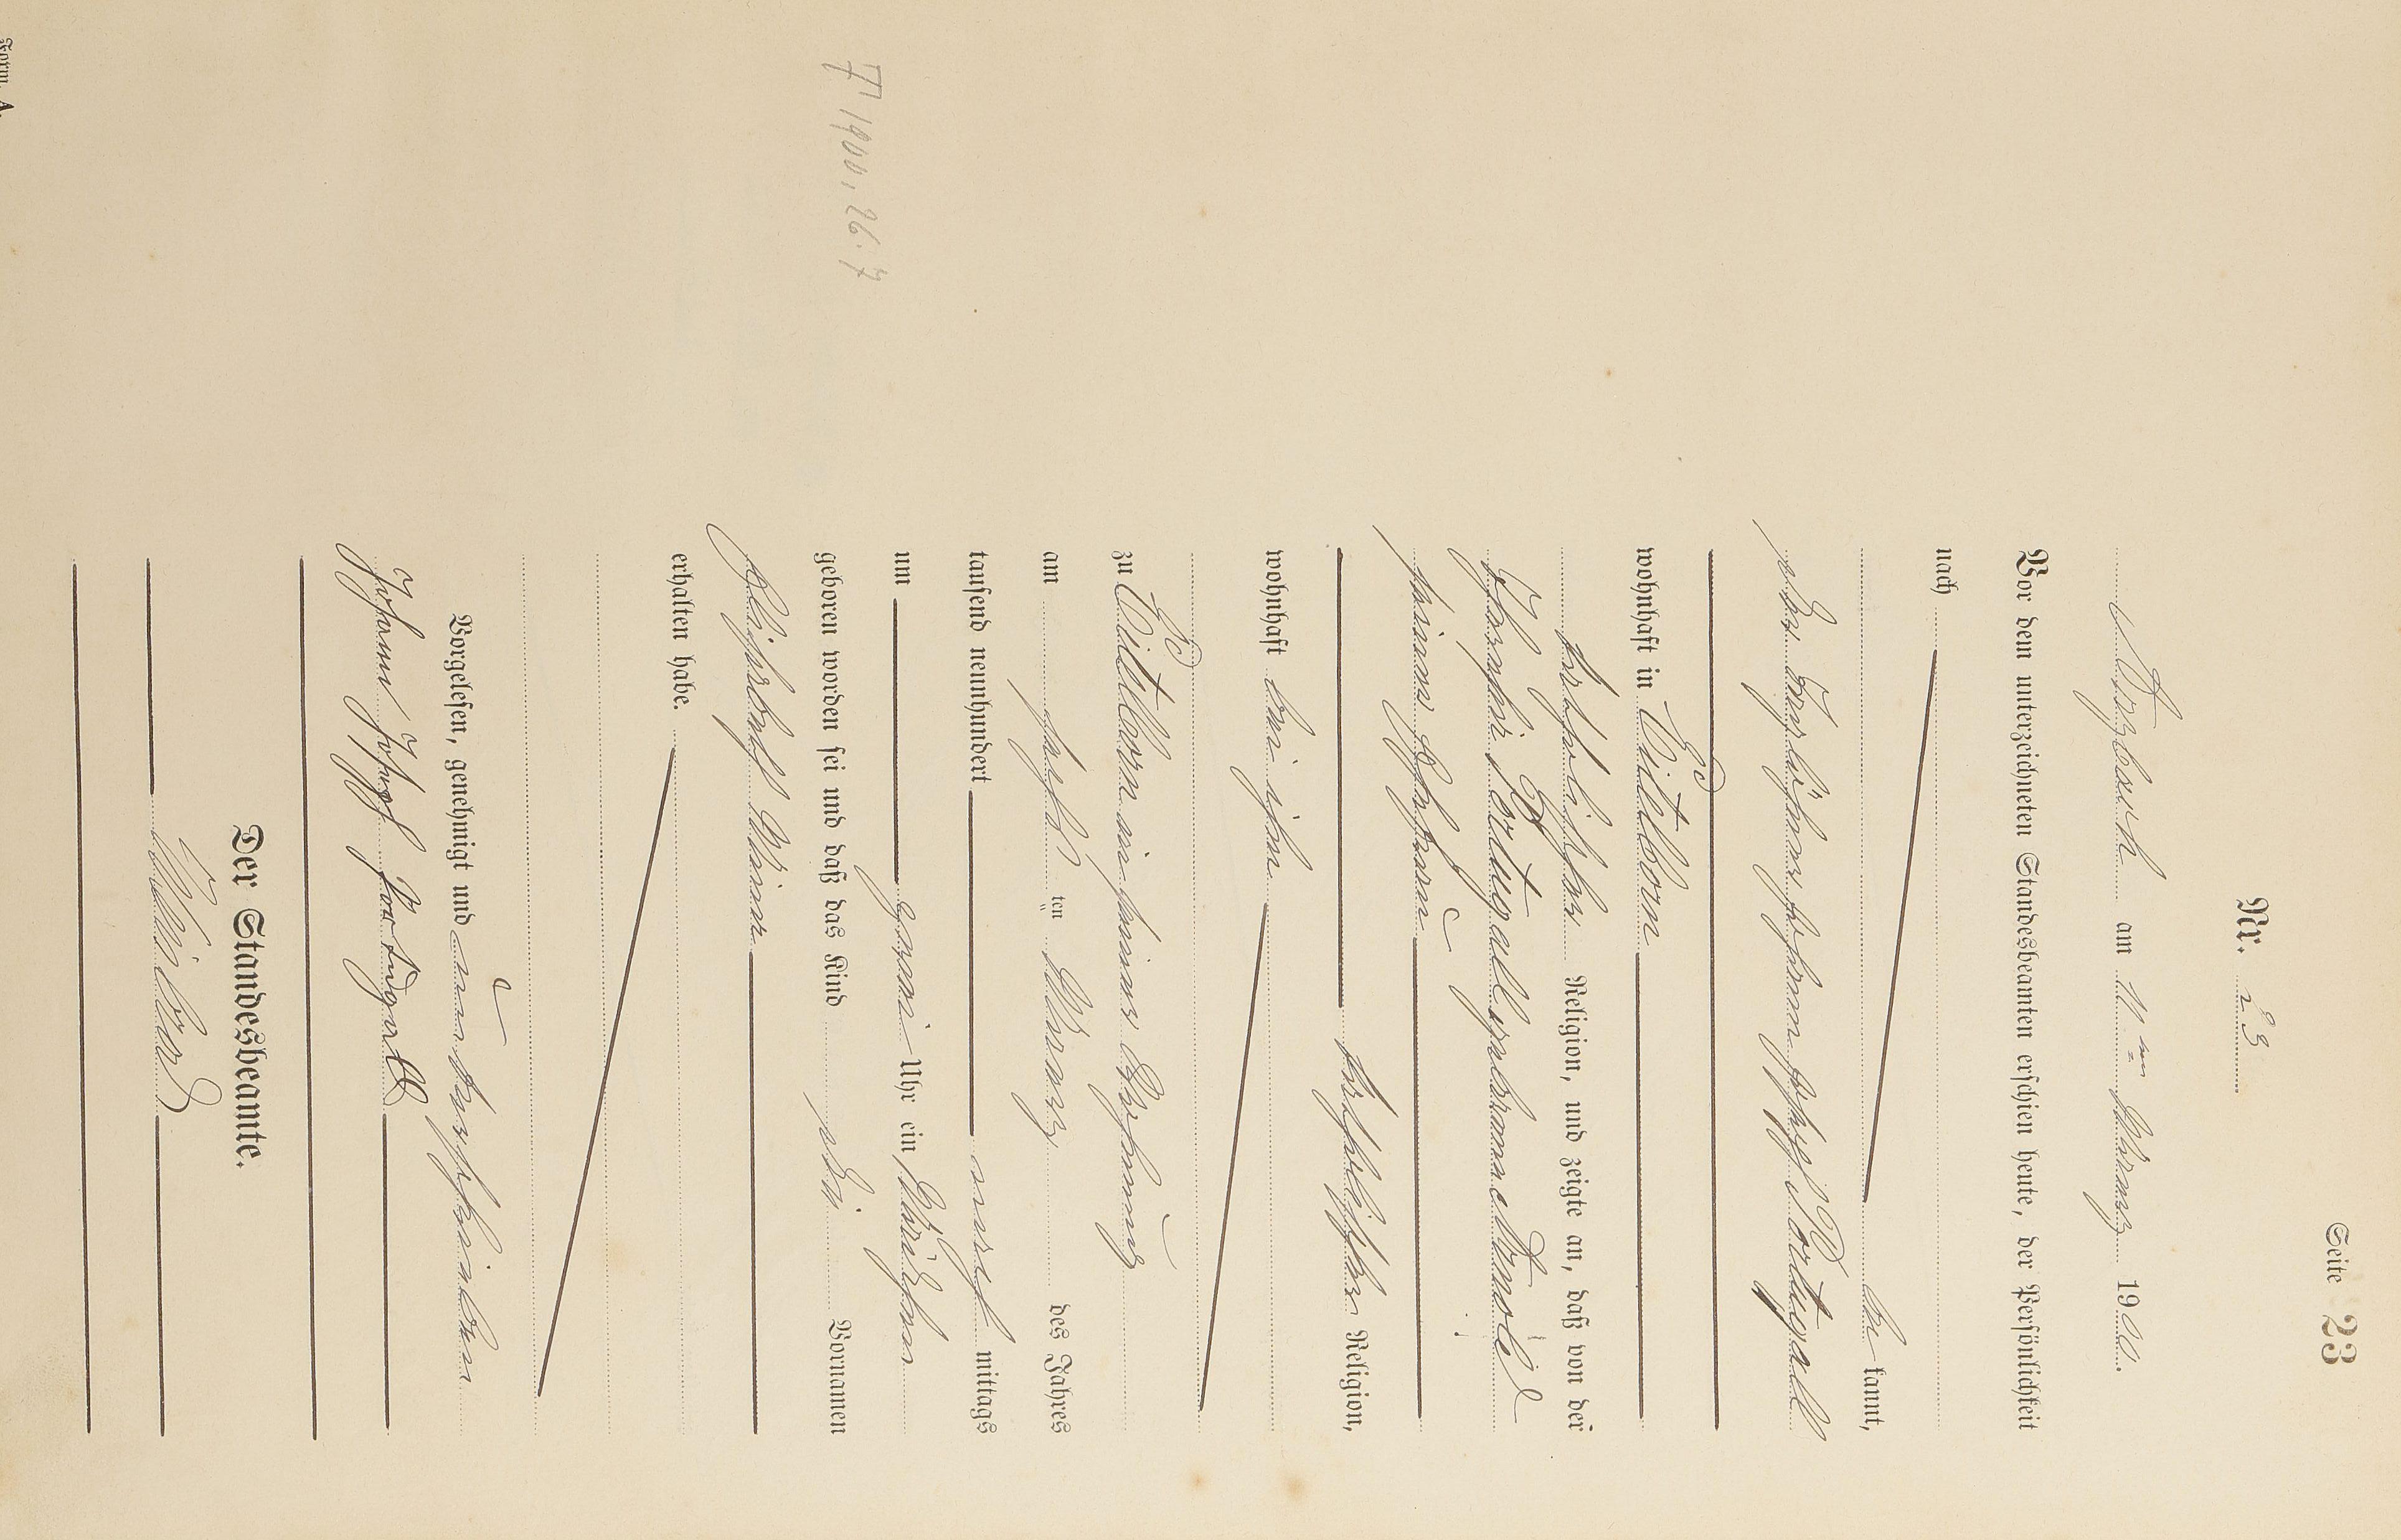 Seite 23
Nr. 23
Atzbach am 11ten Maerz 1900.
Vor dem unterzeichneten Standesbeamten erschien heute, der Persönlichkeit
nach
be kannt,
der Tagelöhner Johann Joseph Portugall
wohnhaft in
katholischer Religion, und zeigte an, daß von der
Portugall geborene
seiner Ehefrau
katholischer Religion,
wohnhaft bei ihm
zu in seiner Wohnung
am ten Maerz des Jahres
tausend neunhundert nach mittags
um zwei Uhr ein Mädchen
geboren worden sei und daß das Kind die Vornamen
Elisabeth
erhalten habe.
Vorgelesen, genehmigt und unterschrieben
Johann Josef Portugall
Der Standesbeamte.
† 1900, 26.7
Form. A.